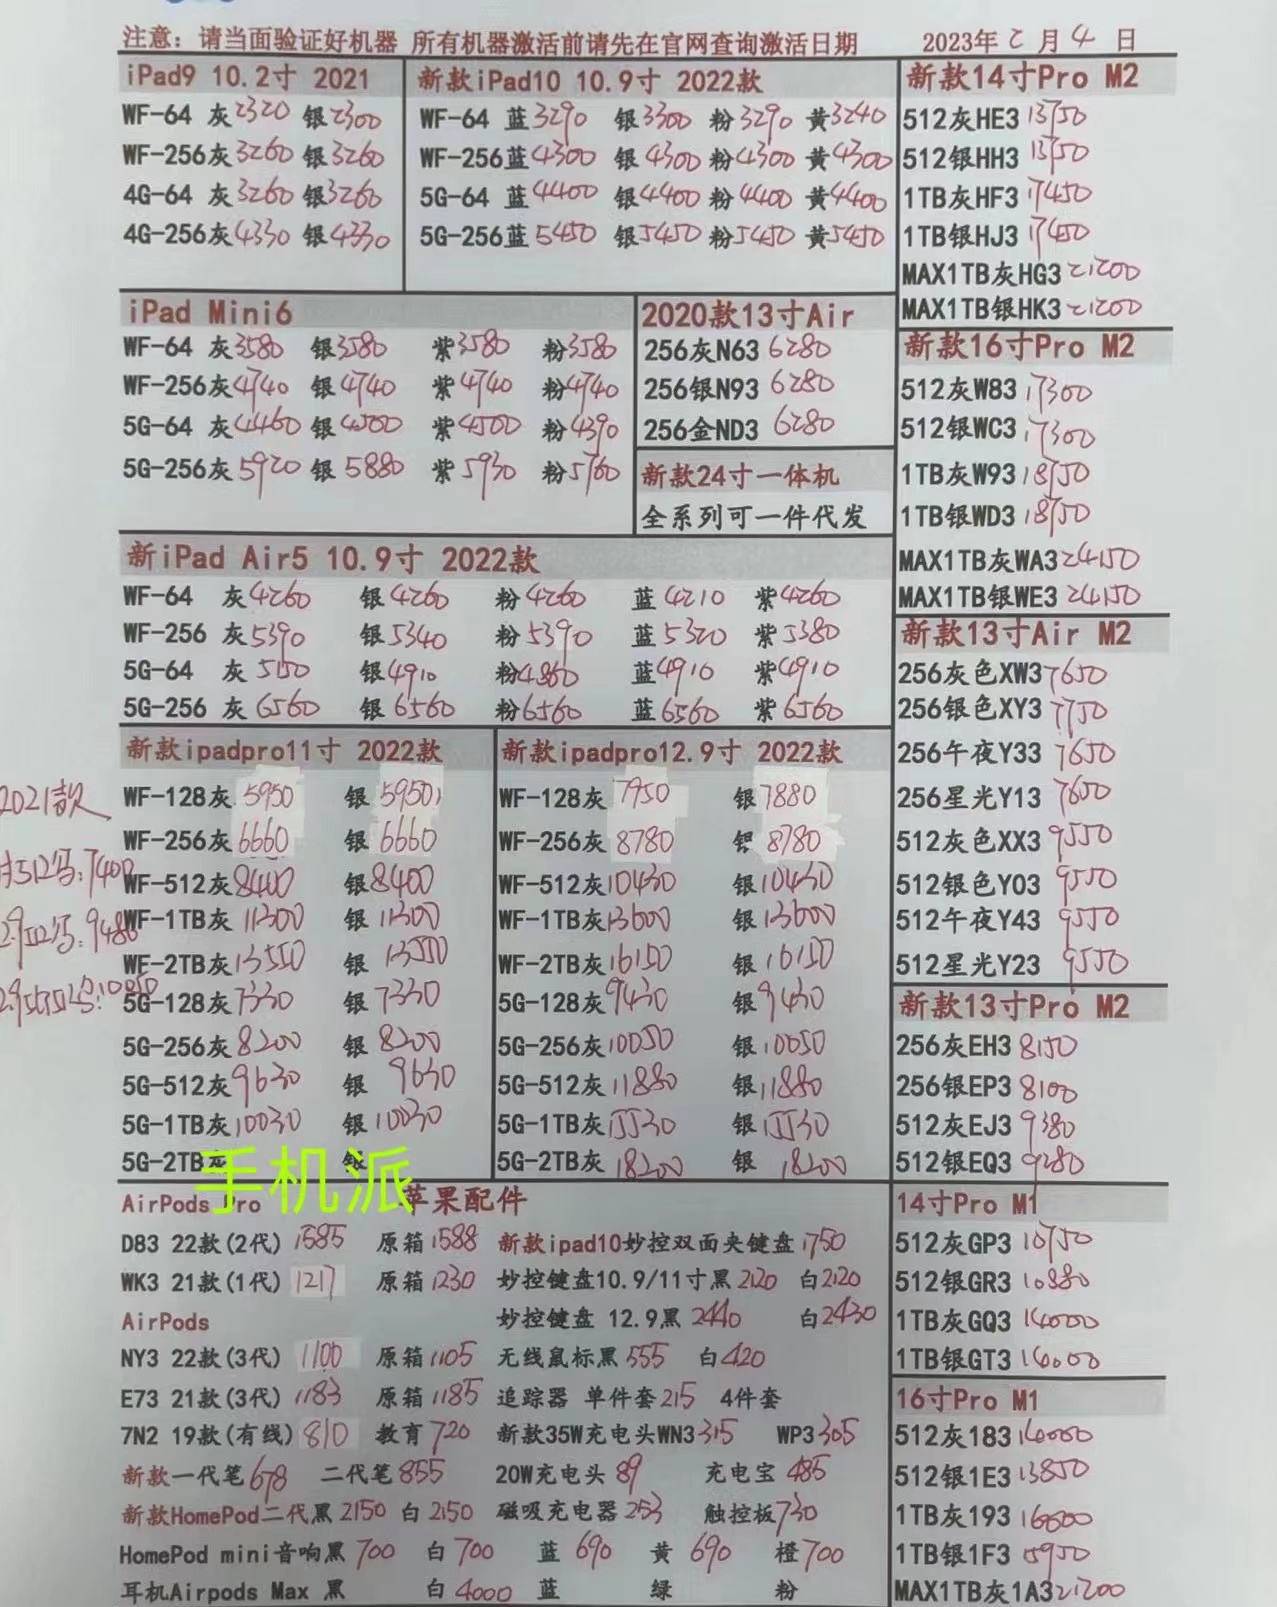 注意：请当面验证好机器 所有机器激活前请先在官网查询激活日期 2023年2月4日
iPad9 10.2寸 2021
WF-64 灰2320 银2300
WF-256灰3260 银3260
4G-64 灰3260 银3260
4G-256灰4330 银4330
新款iPad10 10.9寸 2022款
WF-64 蓝3290 银3300 粉3290 黄3240
WF-256蓝4300 银4300 粉4300 黄4300
5G-64 蓝4400 银4400 粉4400 黄4400
5G-256蓝5450 银5450 粉5450 黄5450
新款14寸Pro M2
512灰HE3 13750
512银HH3 13750
1TB灰HF3 17450
1TB银HJ3 17450
MAX1TB灰HG3 21200
MAX1TB银HK3 21200
iPad Mini6
WF-64 灰3580 银3580 紫3580 粉3580
WF-256灰4740 银4740 紫4740 粉4740
5G-64 灰4460 银4500 紫4500 粉4390
5G-256灰5920 银5880 紫5930 粉5760
2020款13寸Air
256灰N63 6280
256银N93 6280
256金ND3 6280
新款24寸一体机
全系列可一件代发
新款16寸Pro M2
512灰W83 17300
512银WC3 17300
1TB灰W93 18750
1TB银WD3 18750
MAX1TB灰WA3 24150
MAX1TB银WE3 24150
新iPad Air5 10.9寸 2022款
WF-64 灰4260 银4260 粉4260 蓝4210 紫4260
WF-256 灰5390 银5340 粉5390 蓝5320 紫5380
5G-64 灰5150 银4910 粉4860 蓝4910 紫4910
5G-256 灰6560 银6560 粉6560 蓝6560 紫6560
新款13寸Air M2
256灰色XW3 7650
256银色XY3 7750
256午夜Y33 7650
256星光Y13 7650
512灰色XX3 9550
512银色Y03 9550
512午夜Y43 9550
512星光Y23 9550
2021款
新款ipadpro11寸 2022款
WF-128灰 5950 银5950
WF-256灰6660 银6660
WF-512灰8400 银8400
WF-1TB灰11300 银11300
WF-2TB灰13550 银13550
5G-128灰7330 银7330
5G-256灰8200 银8200
5G-512灰9630 银9630
5G-1TB灰10030 银10030
5G-2TB灰 银
新款ipadpro12.9寸 2022款
WF-128灰 7950 银7880
WF-256灰 8780 银8780
WF-512灰10430 银10430
WF-1TB灰13600 银13600
WF-2TB灰16150 银16150
5G-128灰9430 银9430
5G-256灰10050 银10050
5G-512灰11880 银11880
5G-1TB灰15530 银15530
5G-2TB灰 18200 银 18200
新款13寸Pro M2
256灰EH3 8150
256银EP3 8100
512灰EJ3 9380
512银EQ3 9280
手机派
AirPods Pro 苹果配件
D83 22款(2代) 1585 原箱1588 新款ipad10妙控双面夹键盘1750
WK3 21款(1代) 1217 原箱1230 妙控键盘10.9/11寸黑2120 白2120
AirPods 妙控键盘 12.9黑2440 白2430
NY3 22款(3代) 1100 原箱1105 无线鼠标黑555 白420
E73 21款(3代) 1183 原箱1185 追踪器 单件套215 4件套
7N2 19款(有线) 810 教育720 新款35W充电头WN3 315 WP3 305
新款一代笔678 二代笔855 20W充电头 89 充电宝 485
新款HomePod二代黑2150 白2150 磁吸充电器253 触控板730
HomePod mini音响黑700 白700 蓝690 黄690 橙700
耳机Airpods Max 黑 白4000 蓝 绿 粉
14寸Pro M1
512灰GP3 10750
512银GR3 10880
1TB灰GQ3 14000
1TB银GT3 14000
16寸Pro M1
512灰183 14000
512银1E3 13850
1TB灰193 16000
1TB银1F3 15950
MAX1TB灰1A3 21200